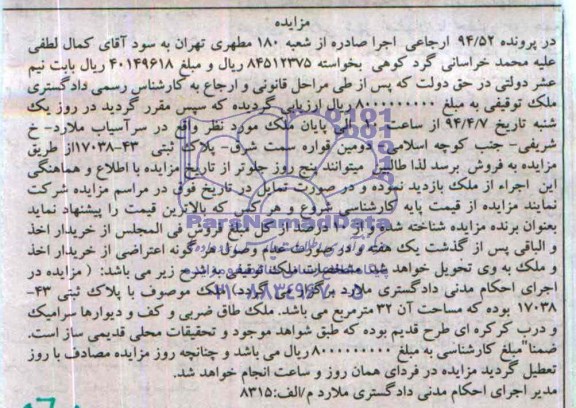 مزایده
در پرونده ۹۴/۵۲ ارجاعی اجرا صادره از شعبه ۱۸۰ مطهری تهران به سود آقای کمال لطفی
علیه محمد خراسانی گرد کوهی بخواسته ۸۴۵۱۲۳۷۵ ریال و مبلغ ۴۰۱۴۹۶۱۸ ریال بابت نیم
عشر دولتی در حق دولت که پس از طی مراحل قانونی و ارجاع به کارشناس رسمی دادگستری
ملک توقیفی به مبلغ ۸۰۰۰۰۰۰۰۰ ریال ارزیابی گردیده که سپس مقرر گردید در روز یک
شنبه تاریخ ۹۴/۴/۷ از ساعت الی پایان ملک مورد نظر واقع در سرآسیاب ملارد- خ
شریفی- جنب کوچه اسلامی- دومین قواره سمت شرق- پلاک ثبتی ۴۳-۱۷۰۳۸از طریق
مزایده به فروش برسد لذا طالبین میتوانند پنج روز جلوتر از تاریخ مزایده با اطلاع و هماهنگی
این اجراء از ملک بازدید نموده و در صورت تمایل در تاریخ فوق در مراسم مزایده شرکت
نمایند مزایده از قیمت پایه کارشناسی شروع و هر کسی که بالاترین قیمت را پیشنهاد نماید
بعنوان برنده مزایده شناخته شده و از ۱۰ درصد از کل مبلغ فروش فی المجلس از خریدار اخذ
و الباقی پس از گذشت یک هفته و در صورت عدم وصول هرگونه اعتراضی از خریدار اخذ
و ملک به وی تحویل خواهد شد. مشخصات ملک توقیفی به شرح زیر می باشد: ( مزایده در
اجرای احکام مدنی دادگستری ملارد برگزار می گردد) ملک موصوف با پلاک ثبتی ۴۳-
۱۷۰۳۸ بوده که مساحت آن ۳۲ مترمربع می باشد. ملک طاق ضربی و کف و دیوارها سرامیک
و درب کرکره ای طرح قدیم بوده که طبق شواهد موجود و تحقیقات محلی قدیمی ساز است.
ضمنا"مبلغ کارشناسی به مبلغ ۸۰۰۰۰۰۰۰۰ ریال می باشد و چنانچه روز مزایده مصادف با روز
تعطیل گردید مزایده در فردای همان روز و ساعت انجام خواهد شد.
مدیر اجرای احکام مدنی دادگستری ملارد م/الف:۸۳۱۵
ParsNamadData